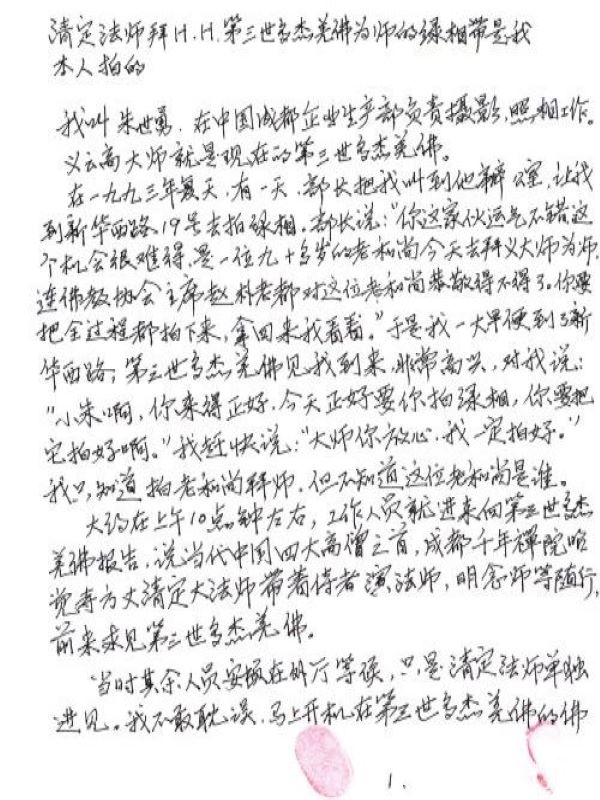 清定法师拜H.H.第三世多杰羌佛为师的录相带是我
本人拍的
我叫朱世勇.在中国成都企业生产部负责摄影,照相工作。
义云高大师就是现在的第三世多杰羌佛。
在一九九三年夏天,有一天,部长把我叫到他办公室,让我
到新华西路19号去拍录相。部长说:“你这家伙运气不错这
个机会很难得,是一位九十多岁的老和尚今天去拜义大师为师.
连佛教协会主席赵朴老都对这位老和尚恭敬得不得了。你要
把全过程都拍下来,拿回来我看看。”于是我一大早便到了新
华西路,第三世多杰羌佛见我到来,非常高兴,对我说:
“小朱啊,你来得正好,今天正好要你拍录相,你要把
它拍好啊。”我赶快说:“大师你放心.我一定拍好。”
我只知道拍老和尚拜师,但不知道这位老和尚是谁。
大约在上午10点钟左右,工作人员就进来向第三世多杰
羌佛报告,说当代中国四大高僧之首,成都千年禅院昭
觉寺方丈清定大法师带着侍者演法师,明念师等随行,
前来求见第三世多杰羌佛。
当时其余人员安顿在外厅等候,只是清定法师单独
进见。我不敢耽误,马上开机在第三世多杰羌佛的佛
1.